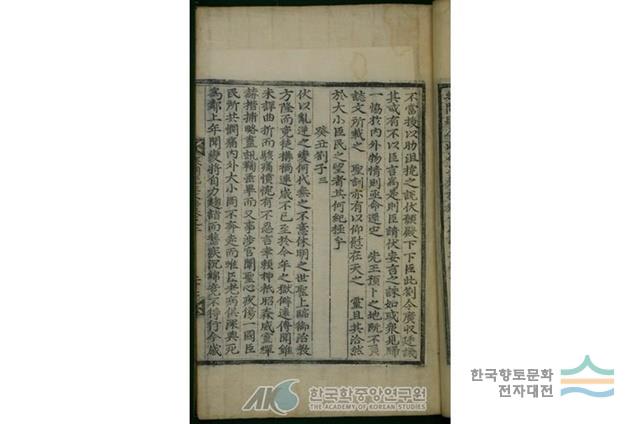 不當授以肋沮撓之說伏願殿下下臣此劄令廣收廷議
其或有不以臣言爲是則臣請伏妄言之誅如或衆見歸
一協於內外物情則亟命還定 先王預卜之地旣不
誌文所載之 聖訓亦有以仰慰在天之 靈且其洽然
於大小臣民之望者其何紀極乎
癸丑劄子三
伏以亂逆之變何代無之不意休明之世聖上臨御治敎
方隆而兇徒搆禍連歲不已至於今年之獄僻遠傳聞雖
未詳曲折而駭痛憤惋有不忍言幸賴神祇昭森威靈
捕略盡訊鞫垂畢而又事涉宮闈聖心 傷一國臣
民所共憫痛內外大小罔不奔走而唯臣老病俱深與死
爲鄰上年聞變將自力趨詣而舊疾沉綿竟不得行今歲
한국학중앙연구원
THE ACADEMY OF KOREAN STUDIES
한국향토문화
전자대전